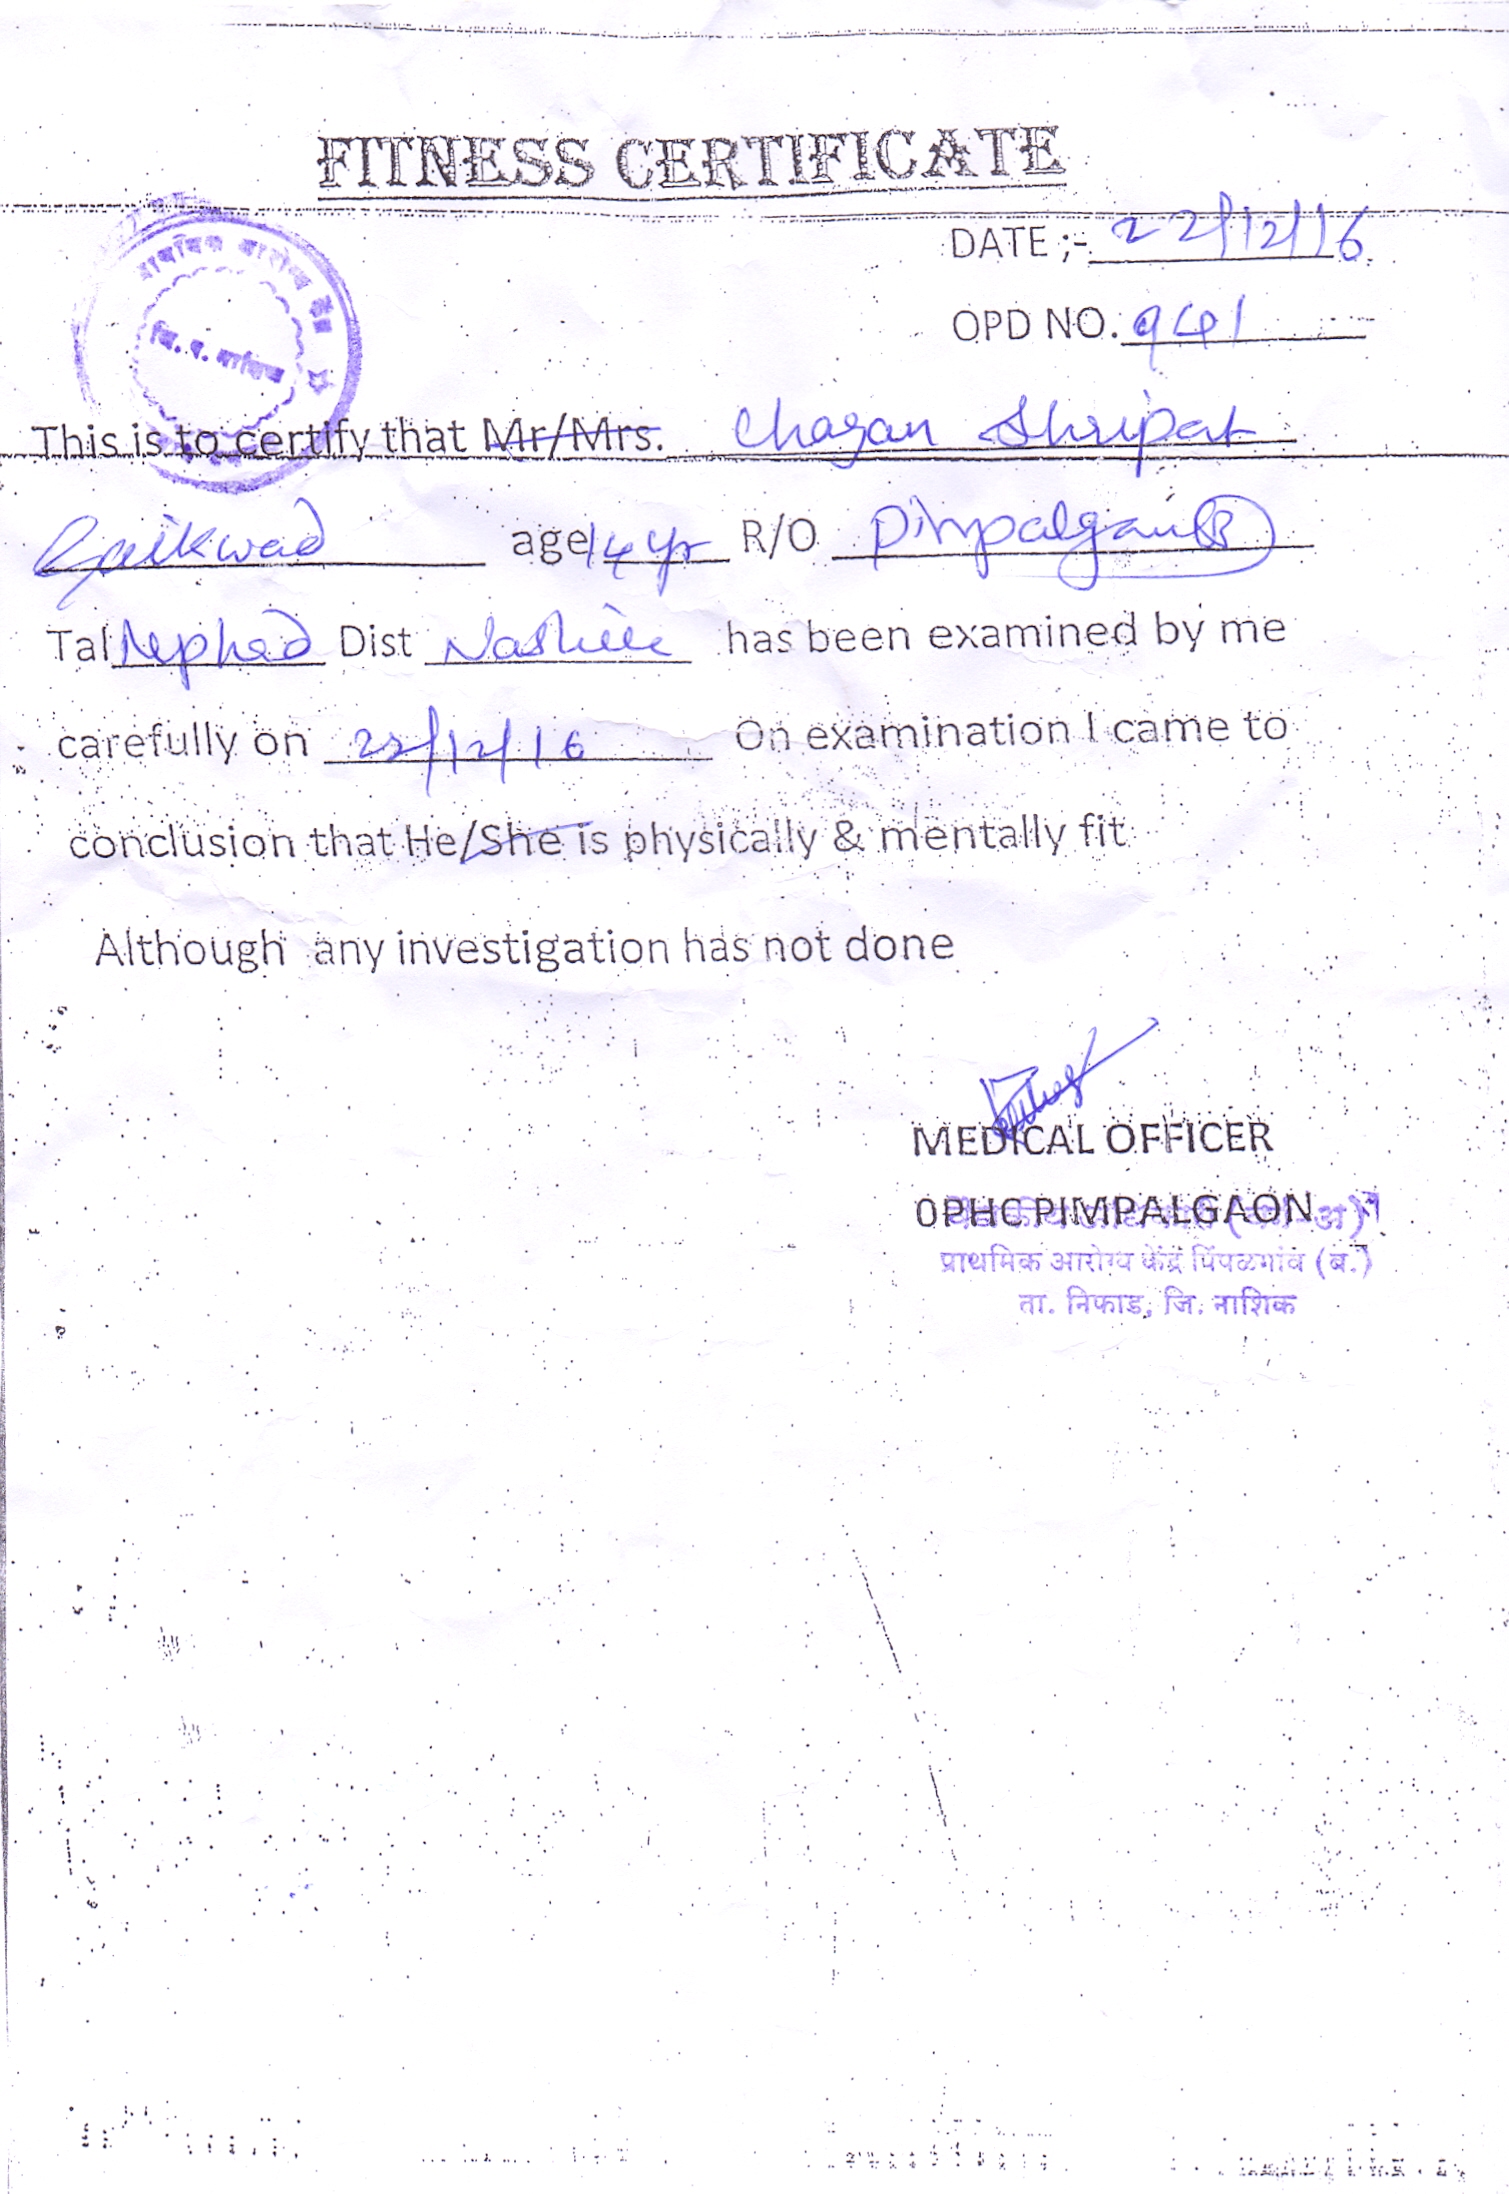 FITNESS CERTIFICATE
DATE ;- 22/12/16
OPD NO. 941
प्राथमिक आरोग्य केंद्र
जि. प. नाशिक
This is to certify that Mr/Mrs. Chagan Shripat
Gaikwad age 14 yr R/O Pimpalgaon (B)
Tal Niphad Dist Nashik has been examined by me
carefully on 22/12/16 On examination I came to
conclusion that He/She is physically & mentally fit
Although any investigation has not done
MEDICAL OFFICER
0PHC PIMPALGAON
प्राथमिक आरोग्य केंद्र पिंपळगांव (ब.)
ता. निफाड, जि. नाशिक